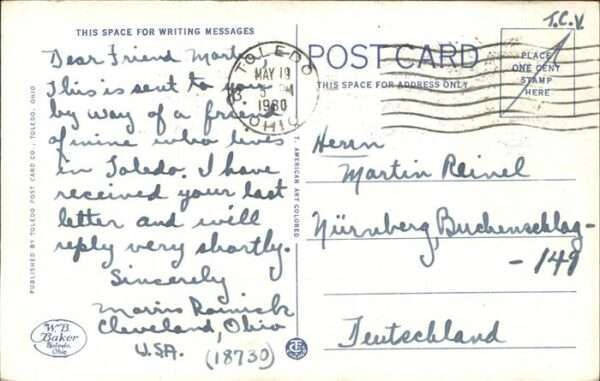 THIS SPACE FOR WRITING MESSAGES
Dear Friend
This is sent to you
by way of a friend
of mine who lives
in Toledo. I have
received your last
letter and will
reply very shortly.
Sincerely
Cleveland, Ohio
U.S.A. (18730)
PUBLISHED BY TOLEDO POST CARD CO., TOLEDO, OHIO
W.B.
Baker
Toledo,
Ohio
"AMERICAN ART COLORED
TOLEDO
MAY 19
PM
1930
OHIO
T.C.V.
POST CARD
THIS SPACE FOR ADDRESS ONLY
PLACE
ONE CENT
STAMP
HERE
Herrn
Martin Reinel
Nürnberg, Buchenschlag-
-149
Teutschland